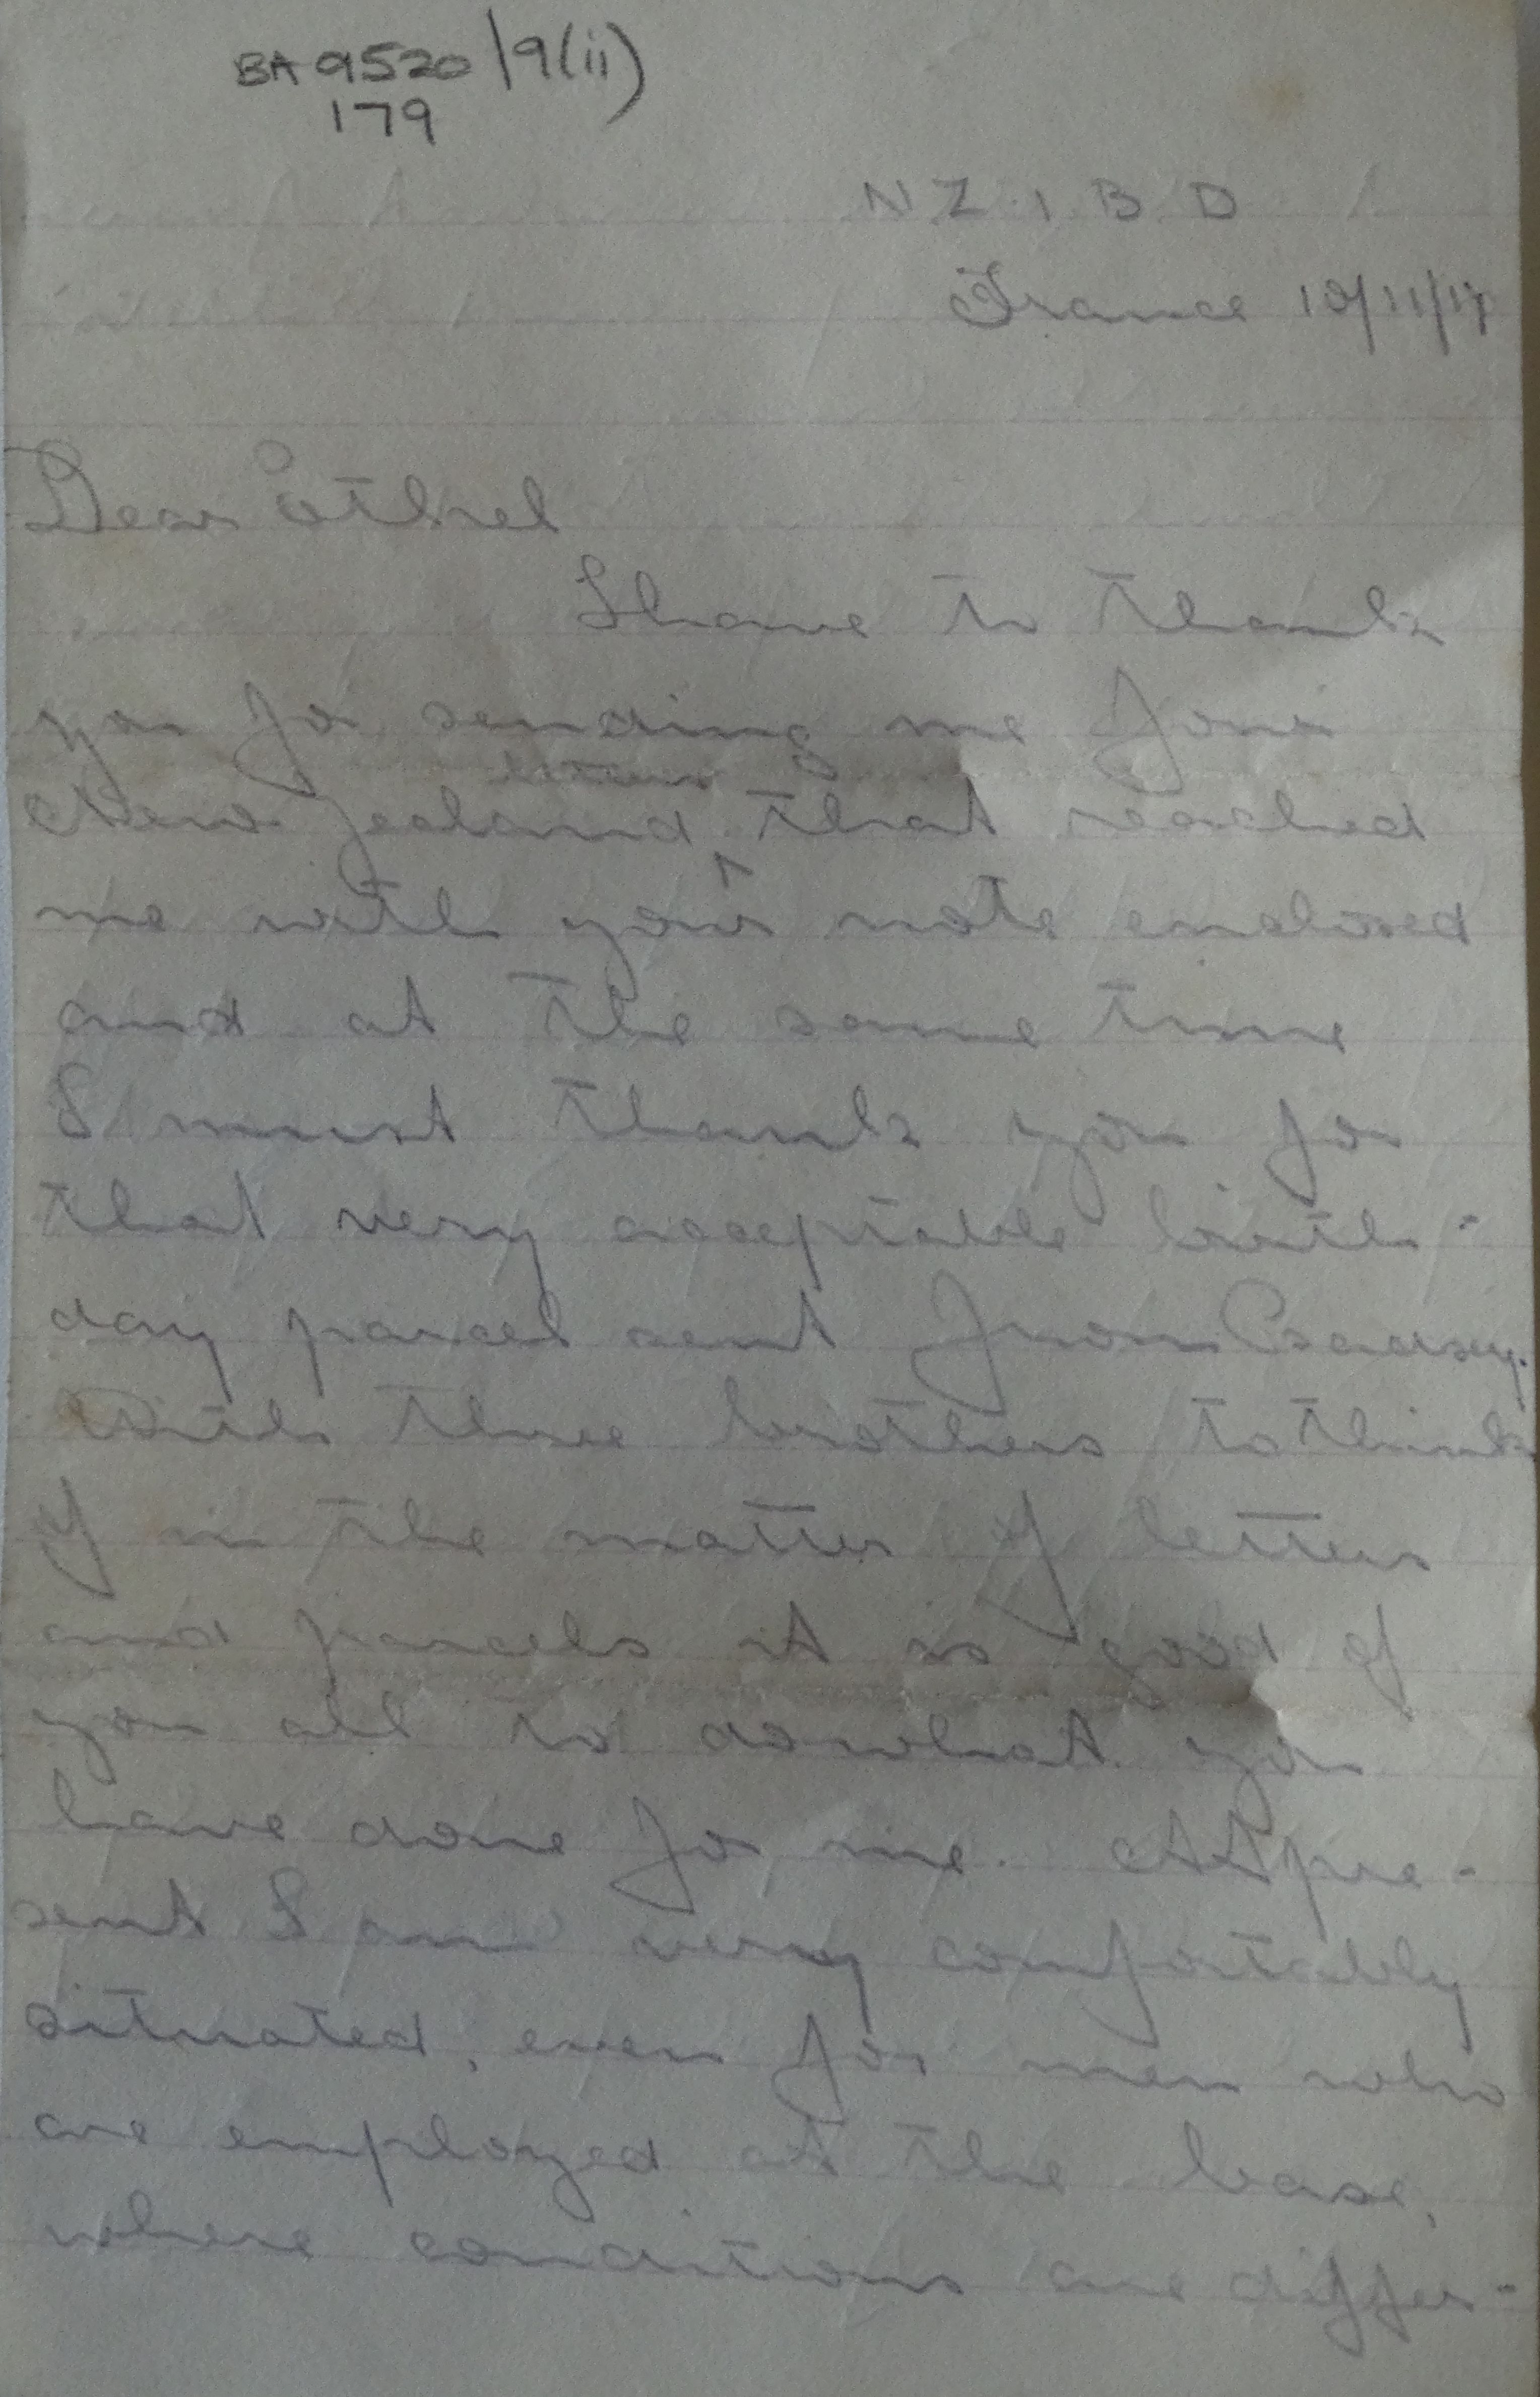 BA 9520/9(ii)
179
N Z I B D
France 10/11/17
Dear Ethel
I have to thank
you for sending me four
letters
New Zealand ^ that reached
me with your note enclosed
and at the same time
I must thank you for
that very acceptable birth-
day parcel sent from
With three brothers to think
of in the matter of letters
and parcels it is good of
you all to do what you
have done for me. At pre-
sent I am very comfortably
situated, even for men who
are employed at the base,
where conditions are differ-